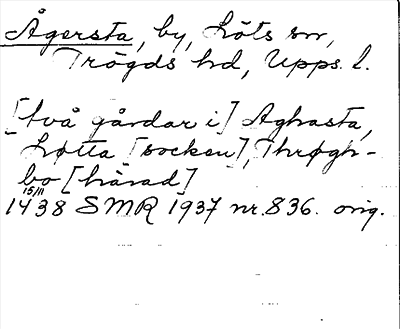 Ågersta, by, Löts sn,
Trögds hd, Upps. l.
[två gårdar i] Aghasta,
Løtta [socken], Thrøgh-
bo [härad]
15/11
1438 SMR 1937 nr. 836. orig.